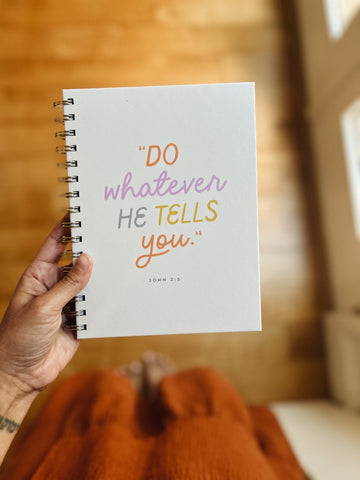 "DO
whatever
HE TELLS
you."
JOHN 2:5